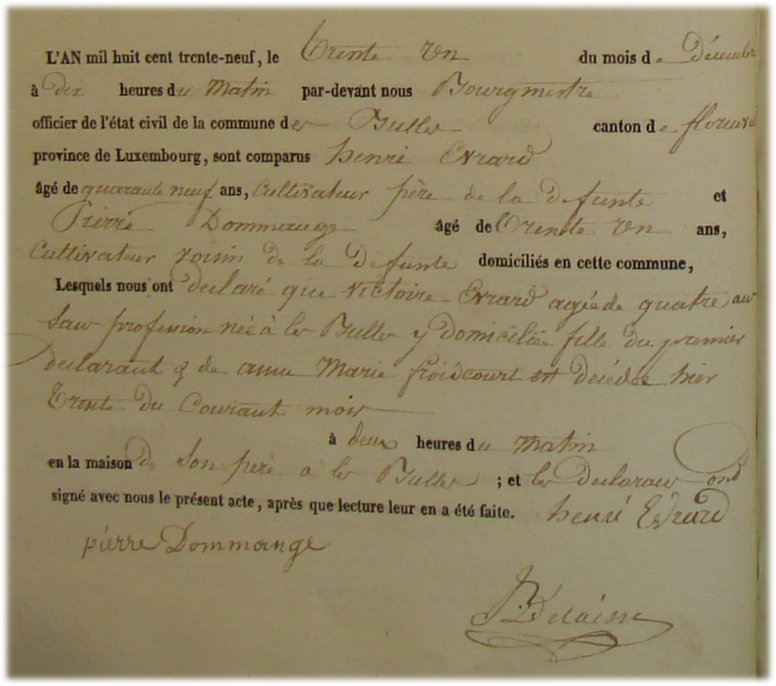 L'AN mil huit cent trente-neuf, le Trente Un du mois de Décembre
à dix heures du Matin par-devant nous Bourgmestre
officier de l'état civil de la commune des Bulles canton de florenville
province de Luxembourg, sont comparus henri Evrard
âgé de quarante neuf ans, Cultivateur père de la defunte et
Pierre Dommange âgé de Trente Un ans,
Cultivateur voisin de la defunte domiciliés en cette commune,
Lesquels nous ont declaré que victoire Evrard agée de quatre ans
sans profession née à les Bulles y domiciliée fille du premier
declarant & de anne Marie froidcourt est decédée hier
Trente du Courant mois
à deux heures du Matin
en la maison de son père à les Bulles ; et les declarans ont
signé avec nous le présent acte, après que lecture leur en a été faite. henri Evrard
pierre Dommange